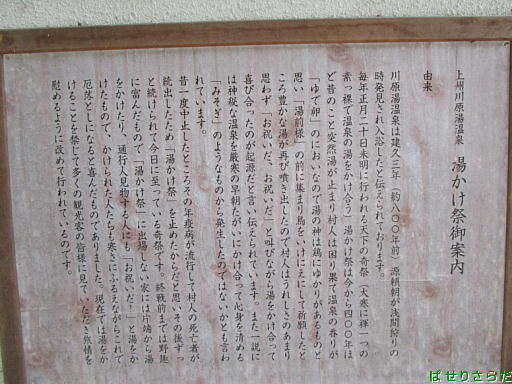 上州川原湯温泉　湯かけ祭御案内
由来
川原湯温泉は建久三年（約八〇〇年前）源頼朝が浅間狩りの
時発見され入浴したと伝えられております。
毎年正月二十日未明に行われる天下の奇祭（大寒に裸一つの
素っ裸で温泉の湯をかけ合う）湯かけ祭は今から四〇〇年ほ
ど昔のこと突然湯が止まり村人は困り果て温泉の香りが
「ゆで卵」のにおいなので湯の神は鶏にゆかりがあるものと
思い「湯前様」の前に集まり鳥をいけにえにして祈願したと
ころ豊かな湯が再び噴き出したので村人はうれしさのあまり
思わず「お祝いだ、お祝いだ」と叫びながら湯をかけ合って
喜び合ったのが起源だと言い伝えられています。また一説に
は神秘な温泉を厳寒の早朝たがいにかけ合って心身を清める
「みそぎ」のようなものから発生したのではないかとも言わ
れています。
昔一度中止したところその年疫病が流行して村人の死亡者が
続出したため「湯かけ祭」を止めたからだと思いその後ずっ
と続けられて今日に至っている奇祭です。終戦前までは野趣
に富んだもので「湯かけ祭」に出場しない家には片端から湯
をかけたり、通行人見物する人にも「お祝いだ！」と湯をか
けたもので、かけられた人たちも寒さにふるえながらこれで
厄落としになると喜んだものでありました。現在では湯をか
けることを禁じて多くの観光客の皆様に見ていただき旅情を
慰めるように改めて行われているのです。
ぱせりさらだ